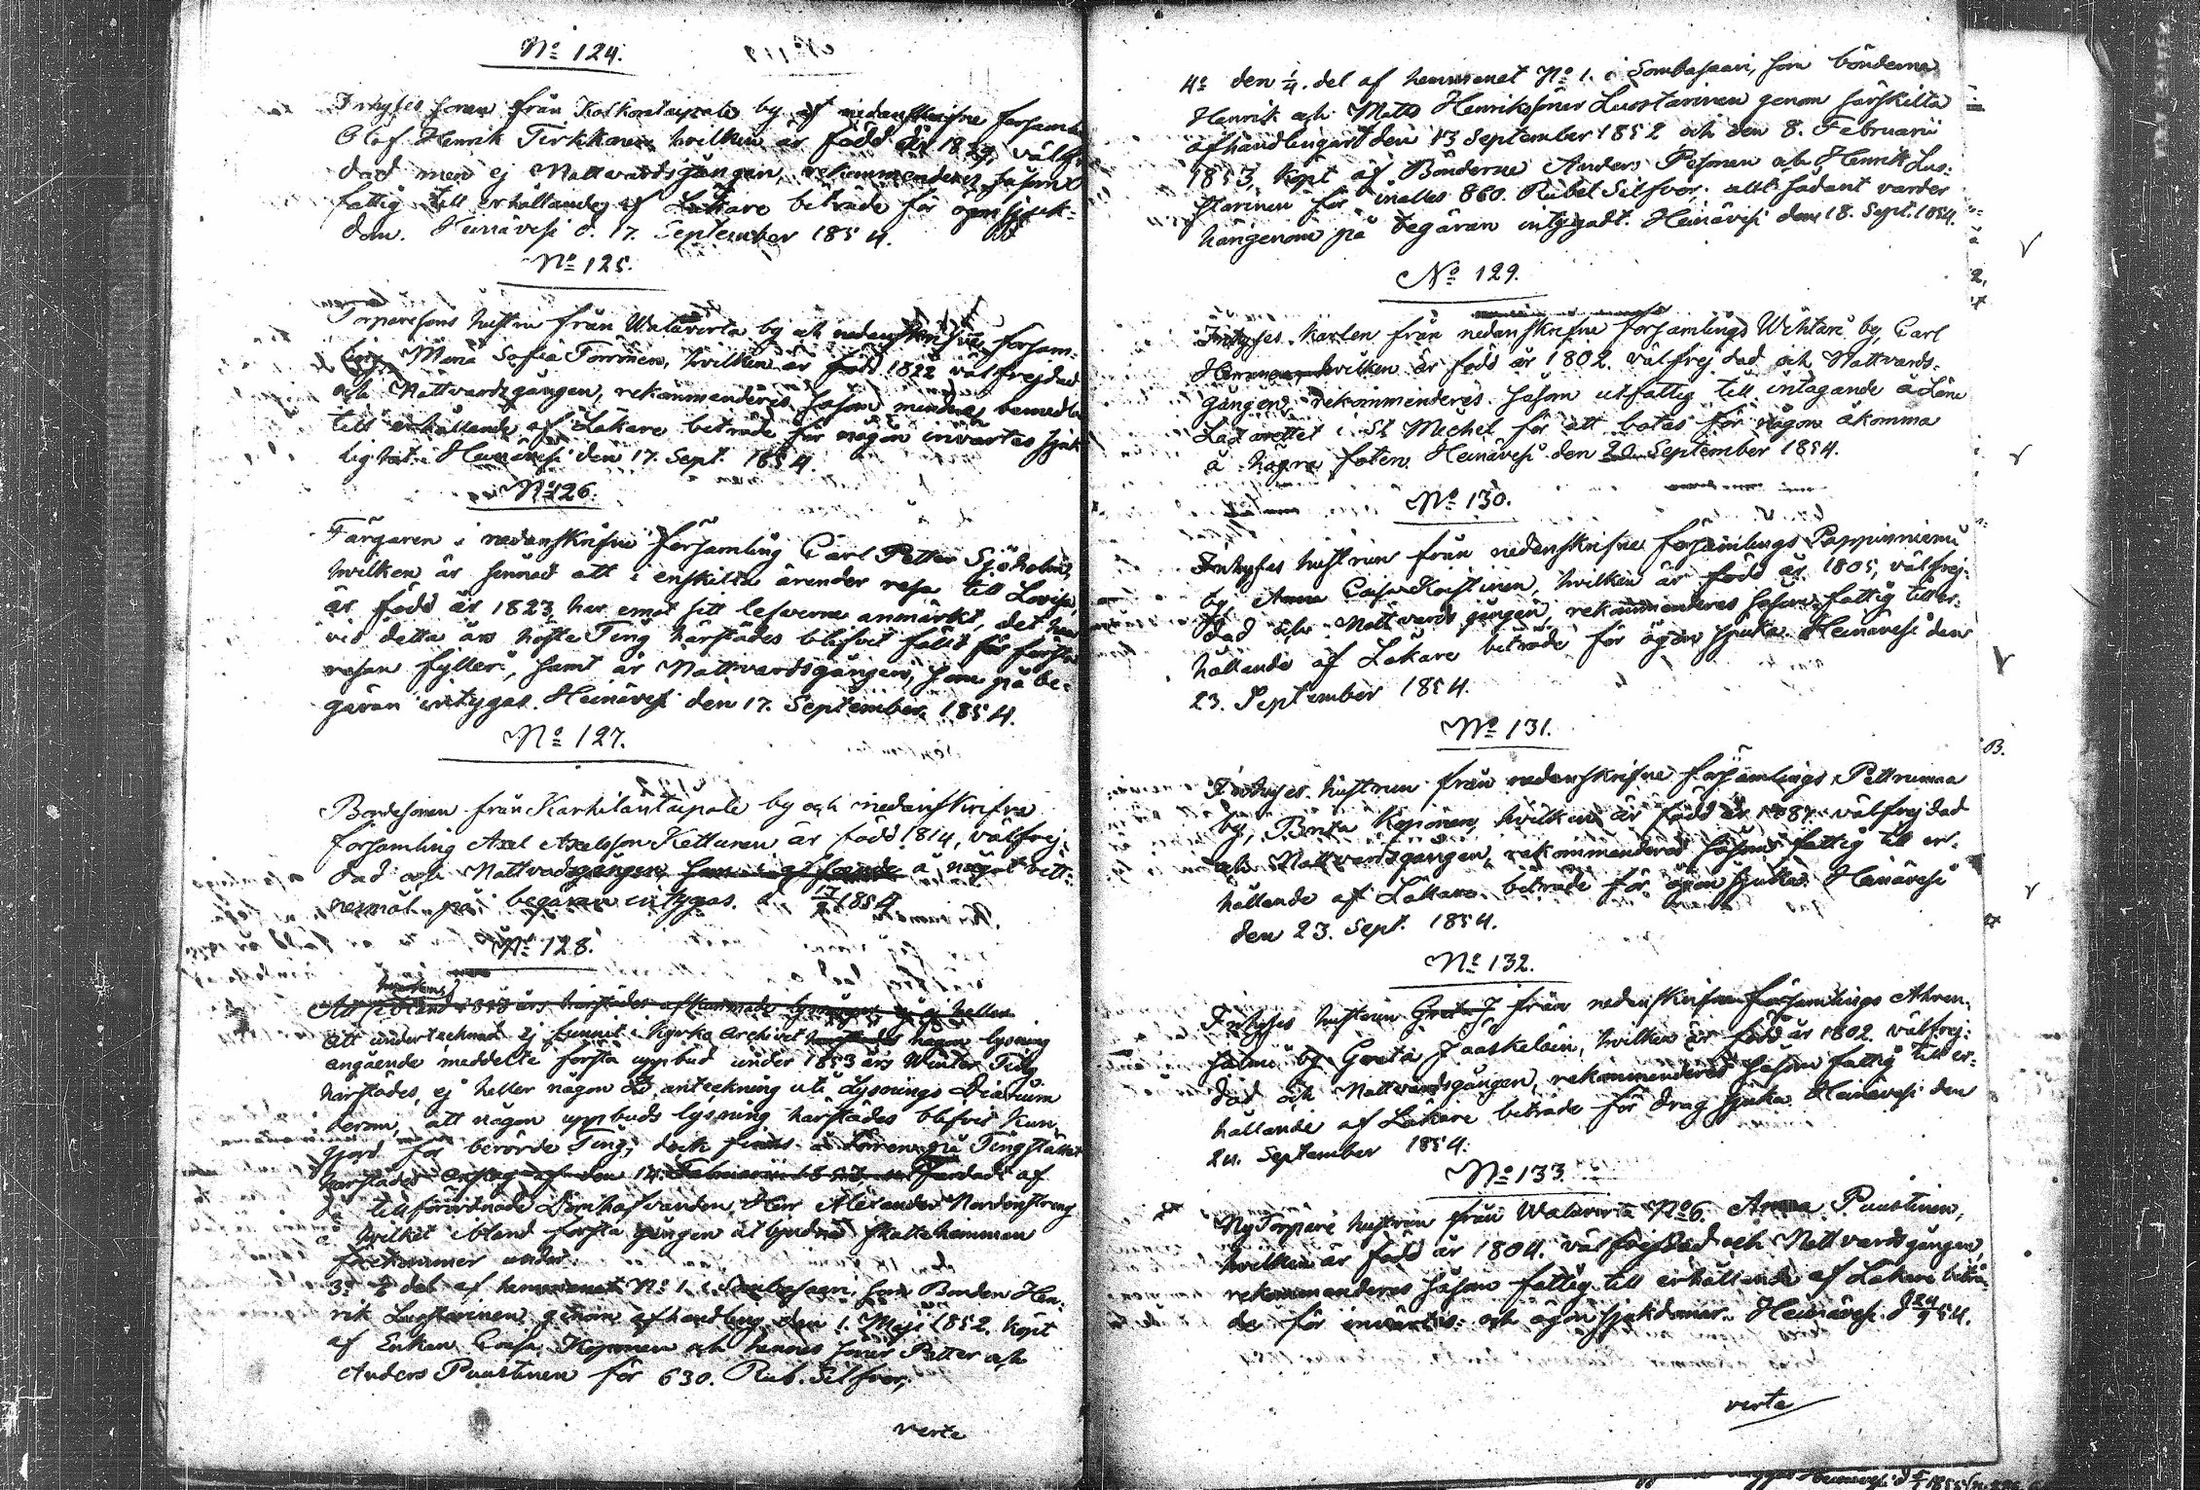 No 124.
Inhyses sonen från Kolkontaipale by af nedanskrifne församl
Olof Henrik Tirkkonen, hvilken är född år 1829, välfr
dad men ej Nattvardsgången, rekommenderes såsom
fattig till erhållande af Läkare beträde för ögonsjuk-
dom. Heinävesi d. 17. September 1854.
No 125.
Torparesons hustru från Walavirta by och nedanskrifne försam-
ling, Maria Sofia Tomminen, hvilken är född 1822 välfrejdad
och Nattvardsgången, rekommenderes såsom mindre bemedla
till erhållande af Läkare beträde för någon invärtes sjuk
lighet. Heinävesi den 17. Sept. 1854.
No 126.
Färgaren i nedanskrifne församling Carl Petter Sjöholm,
hvilken är sinnad att i enskilta ärender resa till Lovisa,
är född år 1823, har emot sitt lefverne anmärkt, det han
vid detta års höste Ting härstädes blifvit fäld för första
resan fylleri, samt är Nattvardsgången, som på be-
gäran intygas. Heinävesi den 17. September 1854.
No 127.
Bondesonen från Karhilantaipale by och nedanskrifne
församling Axel Axelsson Kettunen är född 1814, välfrej-
dad och Nattvardsgången å något vitt-
nesmål på begäran intygas. d. 17/9 1854
No 128.
hvarken
Att ibland 1853 års härstädes ej heller
Att undertecknad ej funnit i Kyrko Archivet någon lysning
angående meddelte första uppbud under 1853 års Winter Ting
härstädes, ej heller någon anteckning uti Lysnings Diarium
derom, att någon uppbuds lysning härstädes blifvit kun-
gjord för berörde Ting; dock finnes å dörren på Tingstället
härstädes anslag af den 14. Februarii 1853 af
då tillförordnade Domhafvanden, Herr Alexander Nordenstreng
i hvilket ibland första gången utbjudne skattehemman
förekommer under
3o del af hemmanet No 1. i Sombasaari, som Bonden Hen-
rik Luostarinen genom afhandling den 1. Maji 1852. köpt
af Enkan Caisa Koponen och hennes söner Petter och
Anders Puustinen för 630. Rub. Silfver,
verte
4o den 1/4. del af hemmanet No 1. i Sombasaari, som bönderna
Henrik och Matts Henrikssöner Luostarinen genom särskilta
afhandlingar den 13 September 1852 och den 8. Februarii
1853, köpt af Bönderne Anders Pesonen och Henrik Luo-
starinen för inalles 860. Rubel Silfver; allt sådant varder
härigenom på begäran intygadt. Heinävesi den 18. Sept. 1854.
No 129.
Inhyses karlen från nedanskrifne församlings Wihtari by, Carl
hvilken är född år 1802. välfrejdad och Nattvards-
gången, rekommenderes såsom utfattig till intagande å Läns
Lazarettet i St Michel för att botas för någon åkomma
å högra foten. Heinävesi den 20 September 1854.
No 130.
Inhyses hustrun från nedanskrifne församlings Pappinniemi
by, Anna Caisa Kaistinen, hvilken är född år 1805, välfrej-
dad och Nattvards gången, rekommenderes såsom fattig till er-
hållande af Läkare beträde för ögon sjuka. Heinävesi den
23. September 1854.
No 131.
Inhyses hustrun från nedanskrifne församlings Petrumaa
by, Brita Koponen, hvilken är född år 1787. välfrejdad
och Nattvardsgången, rekommenderes såsom fattig till er-
hållande af Läkare beträde för ögon sjuka. Heinävesi
den 23. Sept. 1854.
No 132.
Inhyses hustrun Greta J från nedanskrifne församlings Ahven-
salmi by Greta Jääskeläin, hvilken är född år 1802. välfrej-
dad och Nattvardsgången, rekommenderes såsom fattig till er-
hållande af Läkare beträde för drag sjuka. Heinävesi den
24. September 1854.
No 133.
Ny Torpare hustrun från Walavirta No 6. Anna Puustinen,
hvilken är född år 1804. välfrejdad och Nattvardsgången,
rekommenderes såsom fattig till erhållande af Läkare beträ-
de för invärtes och ögon sjukdomar. Heinävesi d 24/9 54.
verte